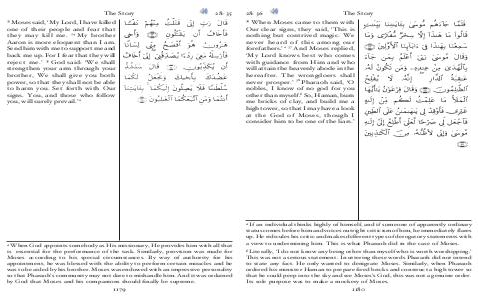 The Story
28: 35
33 Moses said, 'My Lord, I have killed
one of their people and fear that
they may kill me. 34 My brother
Aaron is more eloquent than I am.
Send him with me to support me and
back me up. For I fear that they will
reject me.' 35 God said: 'We shall
strengthen your arm through your
brother, We shall give you both
power, so that they shall not be able
to harm you. Set forth with Our
signs. You, and those who follow
you, will surely prevail.'a
قَالَ رَبِّ إِنِّي قَتَلْتُ مِنْهُمْ نَفْسًا
فَأَخَافُ أَن يَقْتُلُونِ ۝ وَأَخِي
هَـٰرُونُ هُوَ أَفْصَحُ مِنِّي لِسَانًا
فَأَرْسِلْهُ مَعِيَ رِدْءًا يُصَدِّقُنِي إِنِّي أَخَافُ
أَن يُكَذِّبُونِ ۝ قَالَ سَنَشُدُّ
عَضُدَكَ بِأَخِيكَ وَنَجْعَلُ لَكُمَا
سُلْطَـٰنًا فَلَا يَصِلُونَ إِلَيْكُمَا بِـَٔايَـٰتِنَا
أَنتُمَا وَمَنِ اتَّبَعَكُمَا الْغَـٰلِبُونَ ۝
a When God appoints somebody as His missionary, He provides him with all that
is essential for the performance of the task. Similarly, provision was made for
Moses according to his special circumstances. By way of authority for his
appointment, he was blessed with the ability to perform certain miracles and he
was to be aided by his brother. Moses was endowed with an impressive personality
so that Pharaoh's community may not dare to mishandle him. And it was ordained
by God that Moses and his companions should finally be supreme.
1179
28: 36
The Story
36 When Moses came to them with
Our clear signs, they said, 'This is
nothing but contrived magic. We
never heard of this among our
forefathers.' 37 And Moses replied,
'My Lord knows best who comes
with guidance from Him and who
will attain the heavenly abode in the
hereafter. The wrongdoers shall
never prosper.' 38 Pharaoh said, 'O
nobles, I know of no god for you
other than myself. So, Haman, burn
me bricks of clay, and build me a
high tower, so that I may have a look
at the God of Moses, though I
consider him to be one of the liars.'
فَلَمَّا جَآءَهُم مُّوسَىٰ بِـَٔايَـٰتِنَا بَيِّنَـٰتٍ
قَالُوا مَا هَـٰذَآ إِلَّا سِحْرٌ مُّفْتَرًى وَمَا
سَمِعْنَا بِهَـٰذَا فِيٓ ءَابَآئِنَا الْأَوَّلِينَ ۝
وَقَالَ مُوسَىٰ رَبِّيٓ أَعْلَمُ بِمَن جَآءَ
بِالْهُدَىٰ مِنْ عِندِهِ وَمَن تَكُونُ لَهُ
عَـٰقِبَةُ الدَّارِ إِنَّهُ لَا يُفْلِحُ
الظَّـٰلِمُونَ ۝ وَقَالَ فِرْعَوْنُ يَـٰٓأَيُّهَا
الْمَلَأُ مَا عَلِمْتُ لَكُم مِّنْ إِلَـٰهٍ
غَيْرِي فَأَوْقِدْ لِي يَـٰهَـٰمَـٰنُ عَلَى الطِّينِ
فَاجْعَل لِّي صَرْحًا لَّعَلِّيٓ أَطَّلِعُ إِلَىٰٓ إِلَـٰهِ
مُوسَىٰ وَإِنِّي لَأَظُنُّهُ مِنَ الْكَـٰذِبِينَ
۝
a If an individual thinks highly of himself and if someone of apparently ordinary
status comes before him and voices outright criticism of him, he immediately flares
up. He ridicules his critic and makes different types of derogatory statements with
a view to undermining him. This is what Pharaoh did in the case of Moses.
Literally, 'I do not know any being other than myself who is worth worshipping.'
This was not a serious statement. In uttering these words Pharaoh did not intend
to state any fact. He only wanted to denigrate Moses. Similarly, when Pharaoh
ordered his minister Haman to prepare fired bricks and construct a high tower so
that he could peep into the sky and see Moses's God, this was not a genuine order.
Its sole purpose was to make a mockery of Moses.
1180